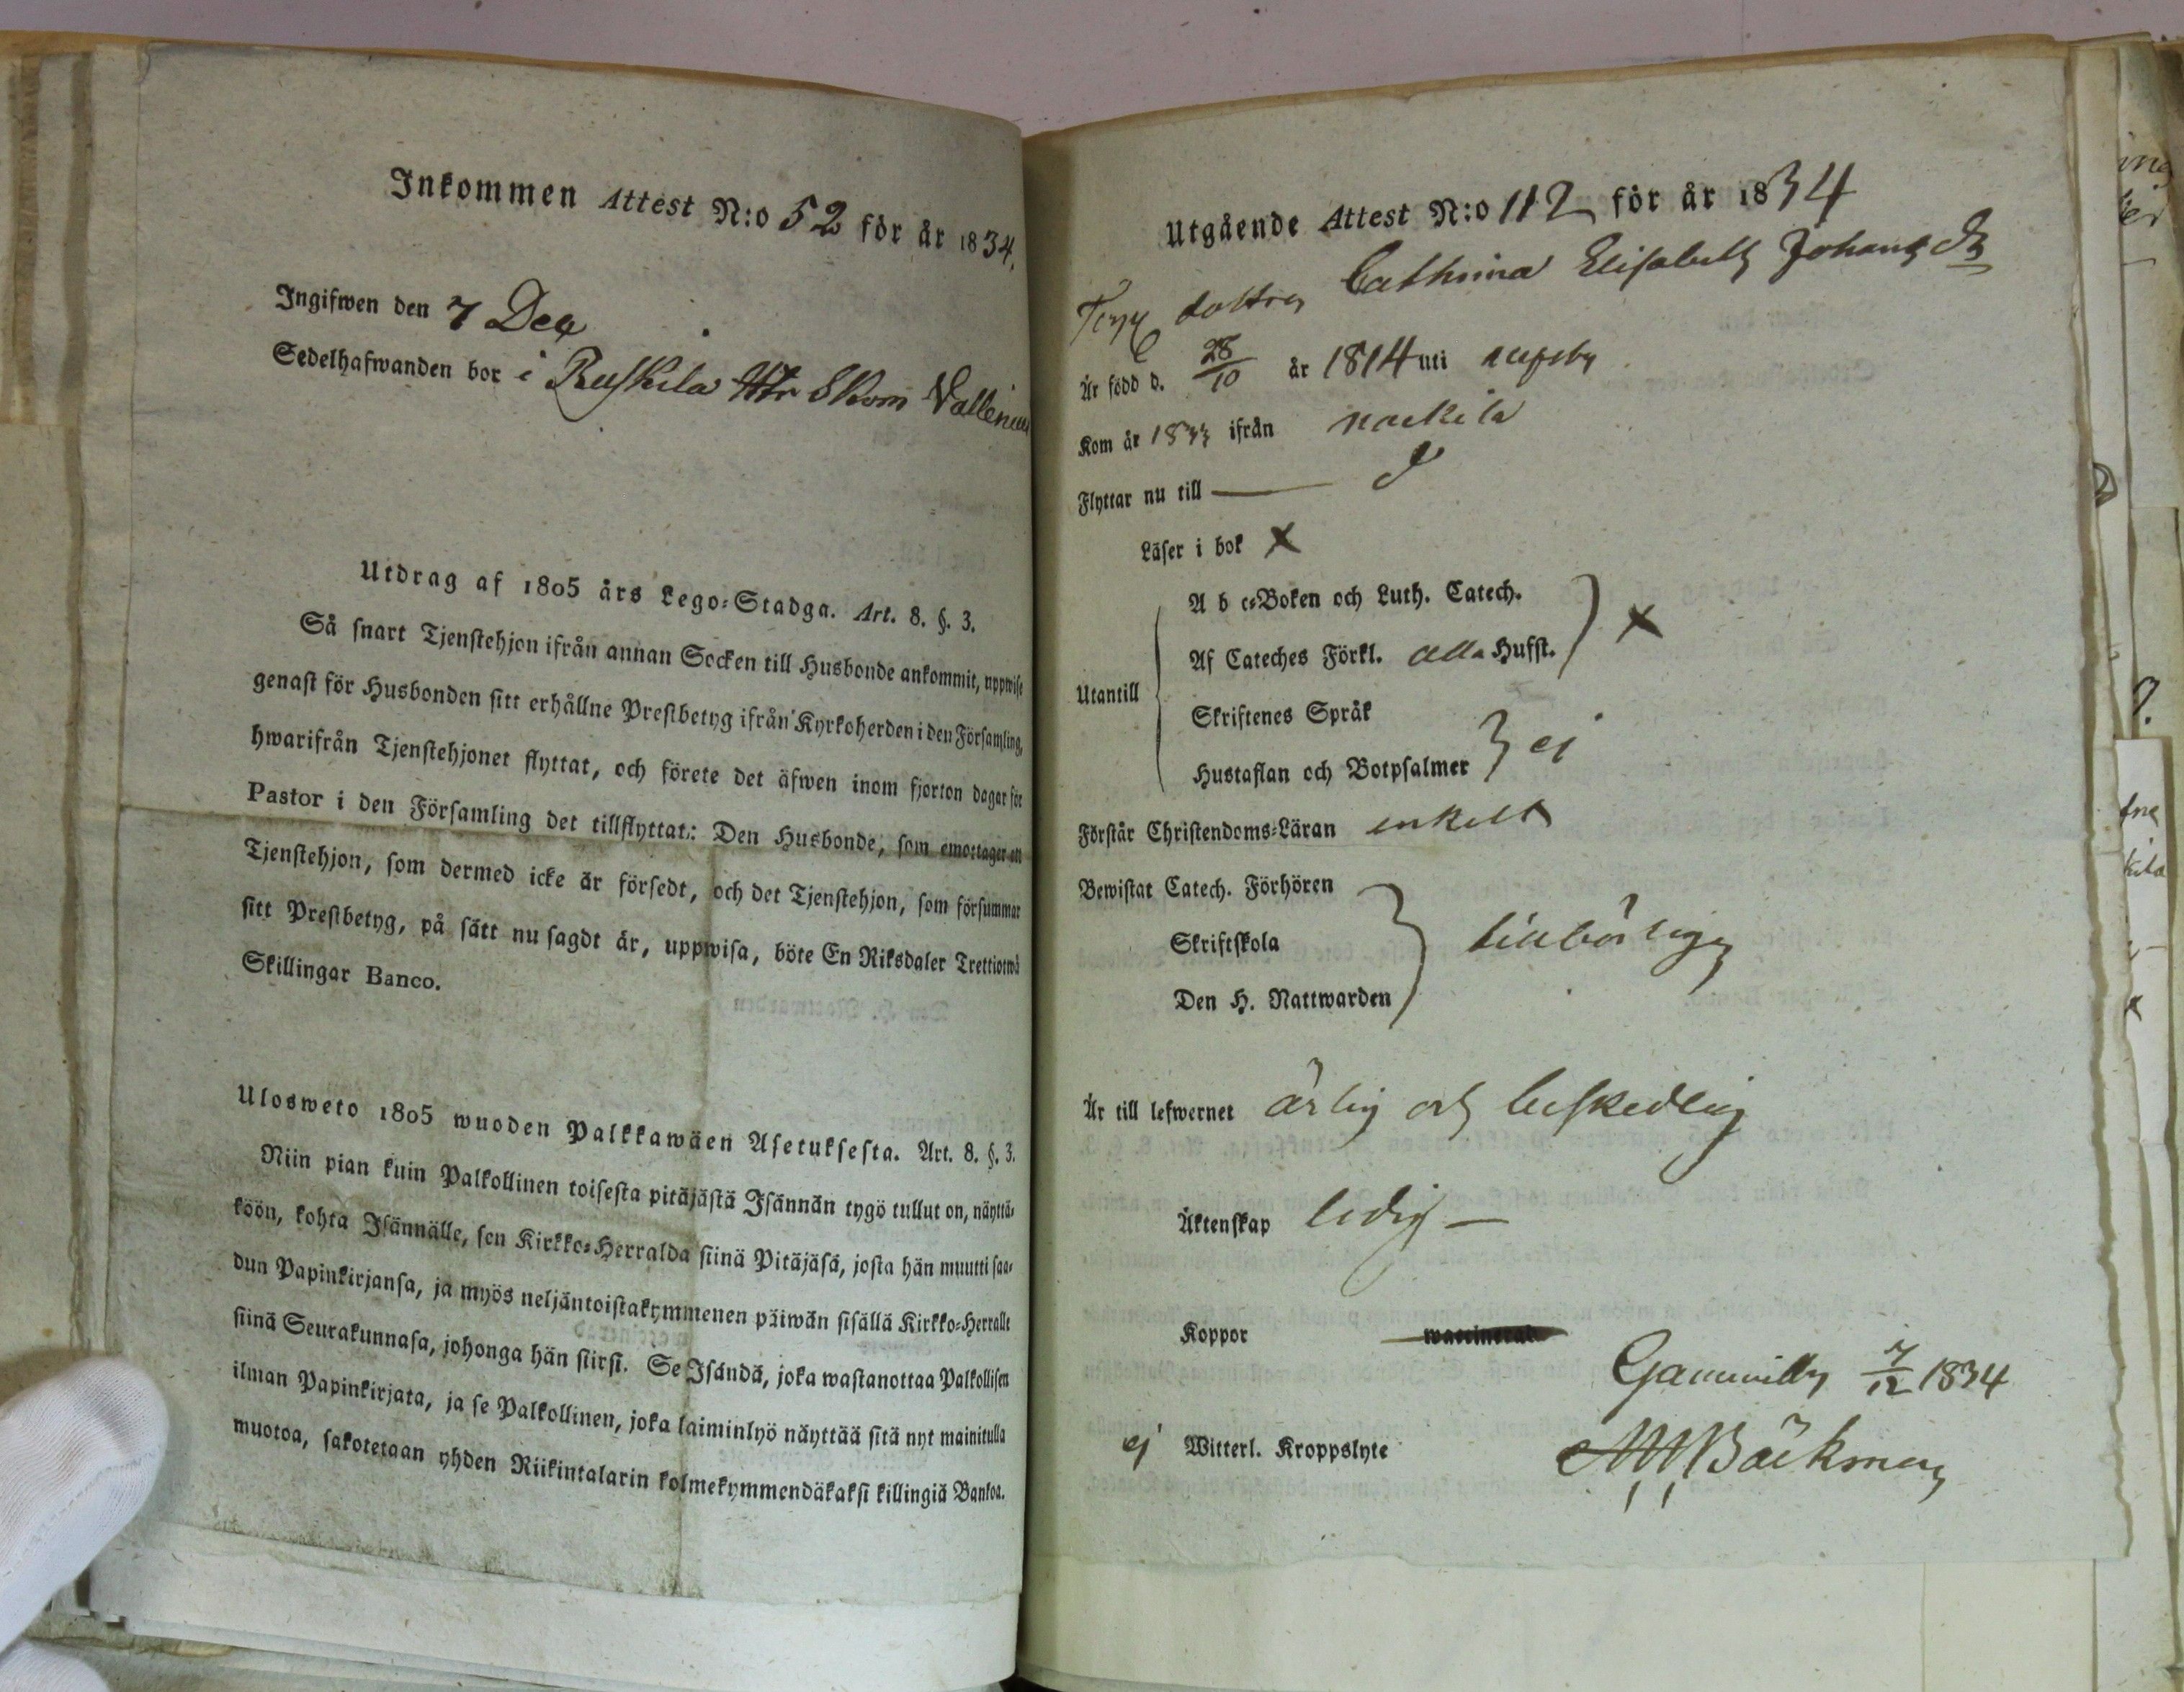 Inkommen Attest N:o 52 för år 1834.
Ingifwen den 7 Dec
Sedelhafwanden bor i Ruskila
Utdrag af 1805 års Lego-Stadga. Art. 8. §. 3.
Så snart Tjenstehjon ifrån annan Socken till Husbonde ankommit, uppwise
genast för Husbonden sitt erhållne Prestbetyg ifrån Kyrkoherden i den Församling,
hwarifrån Tjenstehjonet flyttat, och förete det äfwen inom fjorton dagar för
Pastor i den Församling det tillflyttat.: Den Husbonde, som emottager ett
Tjenstehjon, som dermed icke är försedt, och det Tjenstehjon, som försummar
sitt Prestbetyg, på sätt nu sagdt är, uppwisa, böte En Riksdaler Trettiotwå
Skillingar Banco.
Ulosweto 1805 wuoden Palkkawäen Asetuksesta. Art. 8. §. 3.
Niin pian kuin Palkollinen toisesta pitäjästä Isännän tygö tullut on, näyttä-
köön, kohta Isännälle, sen Kirkko-Herralda siinä Pitäjäsä, josta hän muutti saa-
dun Papinkirjansa, ja myös neljäntoistakymmenen päiwän sisällä Kirkko-Herralle
siinä Seurakunnasa, johonga hän siirsi. Se Isändä, joka wastanottaa Palkollisen
ilman Papinkirjata, ja se Palkollinen, joka laiminlyö näyttää sitä nyt mainitulla
muotoa, sakotetaan yhden Riikintalarin kolmekymmendäkaksi killingiä Bankoa.
Utgående Attest N:o 112 för år 1834
dottren Cathrina Elisabeth Johans dr
Är född d. 28/10 år 1814 uti
Kom år 1833 ifrån nackila
Flyttar nu till —
Läser i bok x
A b c-Boken och Luth. Catech.
Af Cateches Förkl. alla Hufst. } x
Utantill
Skriftenes Språk
Hustaflan och Botpsalmer } ej
Förstår Christendoms-Läran enkelt
Bewistat Catech. Förhören
Skriftskola } tillbörligen
Den H. Nattwarden
Är till lefwernet ärlig och beskedlig
Äktenskap ledig —
Koppor waccinerad
Gammelby 7/12 1834
ej Witterl. Kroppslyte
Bäckman